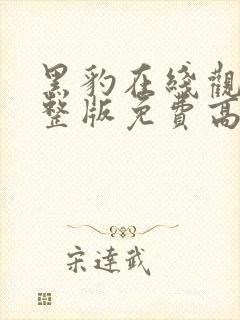 黑豹在綫觀
整版免費高
宋達武